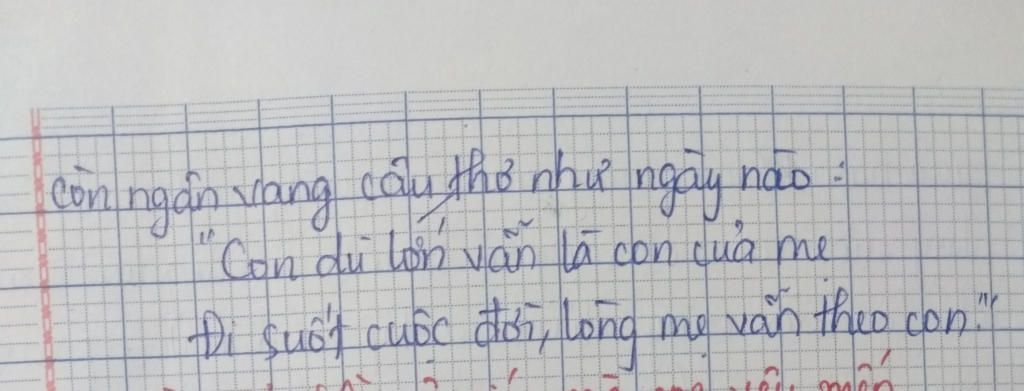 còn ngân vang câu thơ như ngày nào:
"Con dù lớn vẫn là con của mẹ
Đi suốt cuộc đời, lòng mẹ vẫn theo con."